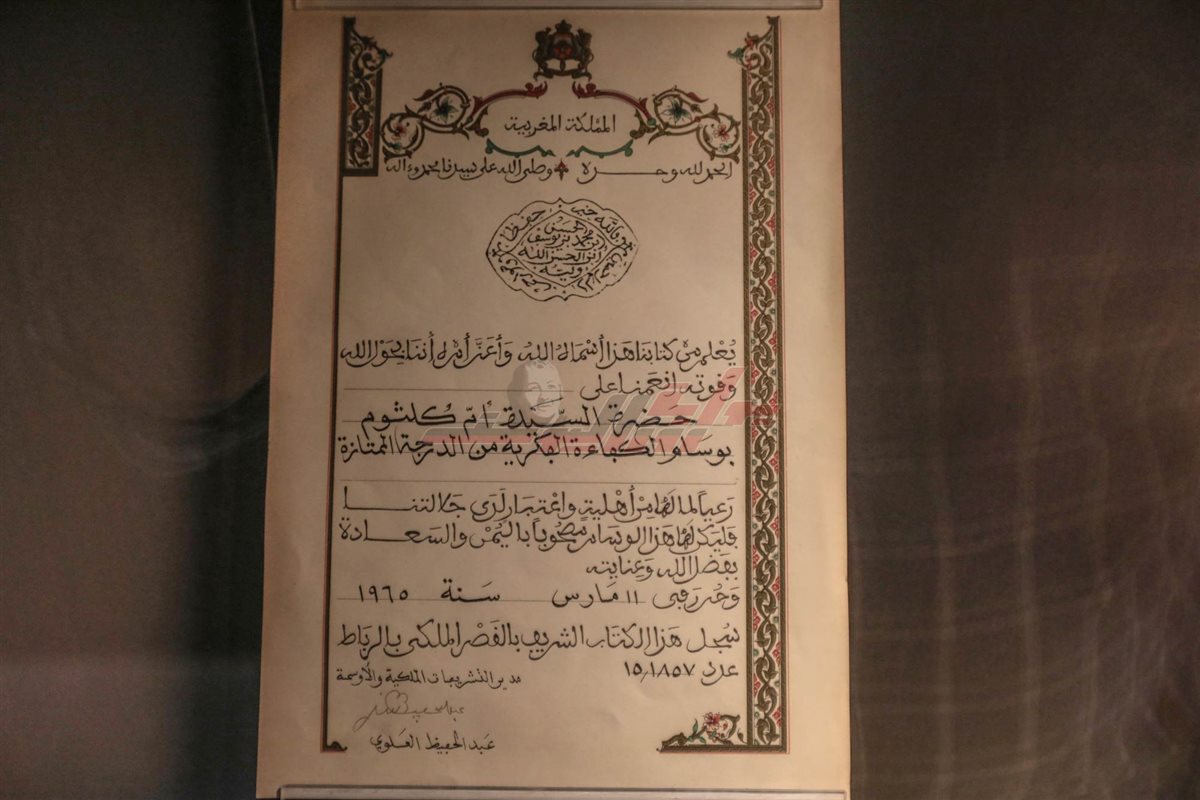 المملكة المغربية
الحمد لله وحده وصلى الله على سيدنا محمد وءاله
الحسن
بن محمد بن يوسف
بن الحسن الله
وليه
يُعْلم من كتابنا هذا أسماه الله وأعَزَّ أمره أننا بحَوْل الله
وَقوته أنعَمنا على
حضرة السيّدة أمّ كلثوم
بوسام الكفاءة الفكرية من الدرجة الممتازة
رَعياً لما لها مِنْ أهْلية واعْتبار لَدَى جَلالتنا
فليَكن لها هذا الوسام مصْحُوباً باليُمْن والسَعادة
بفَضْل الله وَعِنايته
وَحُرر في ١١ مَارس سَنة ١٩٦٥
سُجل هَذا الكتَاب الشريف بالقَصْر الملكي بالرباط
عدد ١٥/١٨٥٧
مدير التشريفات الملكية والأوسمة
عَبد الحَفيظ العَلوي